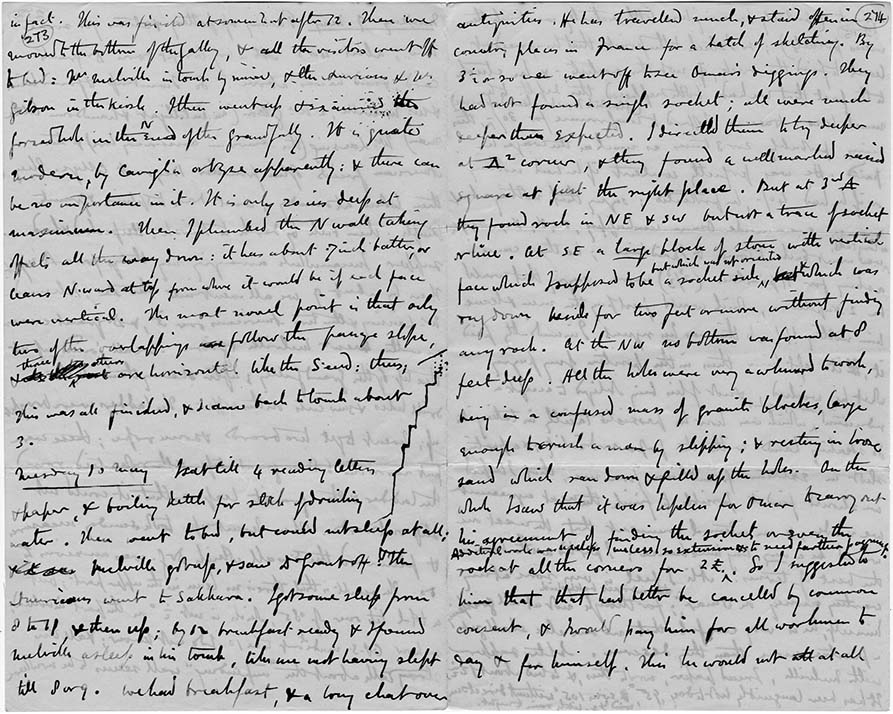 273
in fact. This was finished at somewhat after 12. Then we
moved to the bottom of the gallery, & all the visitors went off
to bed: Mr Melville in tomb by mine, & the Americans &
Gibson in the kiosk. I then went up & examined the
forced hole in the N end of the grand gally. It is quite
modern, by Caviglia or Vyse apparently: & there can
be no importance in it. It is only 20 ins deep at
maximum. Then I plumbed the N wall taking
offsets all the way down: it has about 7 inch batter, or
leans N.ward at top from where it would be if each face
were vertical. The most novel point is that only
two of the overlappings follow the passage slope,
three others are horizontal! like the S end: thus;
This was all finished, & I came back to tomb about
3.
Tuesday 10 May I sat till 4 reading letters
& paper, & boiling kettle for stock of drinking
water. Then went to bed, but could not sleep at all;
Melville got up, & saw Dr Grant off & the
Americans went to Sakkara. I got some sleep from
8 to 11, & then up; by 12 breakfast ready & I found
Melville asleep in his tomb, like me not having slept
till 8 or 9. We had breakfast, & a long chat over
274
antiquities. He has traveled much, & staid often in
country places in France for a batch of sketching. By
3½ or so we went off to see Omar's diggings. They
had not found a single socket; all were much
deeper than expected. I directed them to try deeper
at 2 corner, & they found a well marked raised
square at just the right place. But at 3rd
they found rock in NE & SW but not a trace of socket
or line. At SE a large block of stone with vertical
face which I supposed to be a socket side, but which was not oriented & which was
dug down beside for two feet or more without finding
any rock. At the NW no bottom was found at 8
feet deep. All the holes were very awkward to work,
being in a confused mass of granite blocks, large
enough to crush a man by slipping; & resting in loose
sand which ran down & filled up the holes. On the
whole I saw that it was hopeless for Omar to carry out
his agreement of finding the sockets or even the
rock at all the corners for 2£. So I suggested to
him that that had better be cancelled by common
consent, & I would pay him for all workmen to
day & for himself. This he would not at all